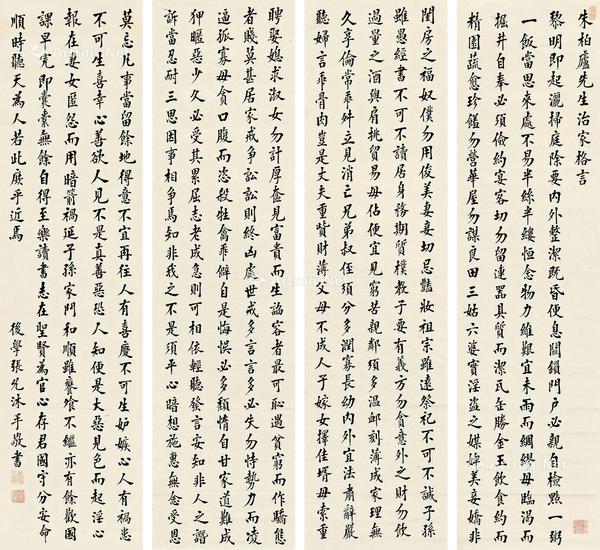 朱柏廬先生治家格言
黎明即起灑掃庭除要內外整潔既昏便息關鎖門戶必親自檢點一粥
一飯當思來處不易半絲半縷恒念物力維艱宜未雨而綢繆毋臨渴而
掘井自奉必須儉約宴客切勿留連器具質而潔瓦缶勝金玉飲食約而
精園蔬愈珍饈勿營華屋勿謀良田三姑六婆實淫盜之媒婢美妾嬌非
閨房之福奴僕勿用俊美妻妾切忌豔妝祖宗雖遠祭祀不可不誠子孫
雖愚經書不可不讀居身務期質樸教子要有義方勿貪意外之財勿飲
過量之酒與肩挑貿易毋佔便宜見窮苦親鄰須多溫卹刻薄成家理無
久享倫常乖舛立見消亡兄弟叔侄須分多潤寡長幼內外宜法肅辭嚴
聽婦言乖骨肉豈是丈夫重貲財薄父母不成人子嫁女擇佳壻毋索重
聘娶媳求淑女勿計厚奩見富貴而生諂容者最可恥遇貧窮而作驕態
者賤莫甚居家戒爭訟訟則終凶處世戒多言言多必失勿恃勢力而凌
逼孤寡毋貪口腹而恣殺牲禽乖僻自是悔悞必多頹惰自甘家道難成
狎暱惡少久必受其累屈志老成急則可相依輕聽發言安知非人之譖
訴當忍耐三思因事相爭焉知非我之不是須平心暗想施惠無念受恩
莫忘凡事當留餘地得意不宜再往人有喜慶不可生妒嫉心人有禍患
不可生喜幸心善欲人見不是真善惡恐人知便是大惡見色而起淫心
報在妻女匿怨而用暗箭禍延子孫家門和順雖饔飧不繼亦有餘歡國
課早完即囊橐無餘自得至樂讀書志在聖賢為官心存君國守分安命
順時聽天為人若此庶乎近焉
後學張允沐手敬書